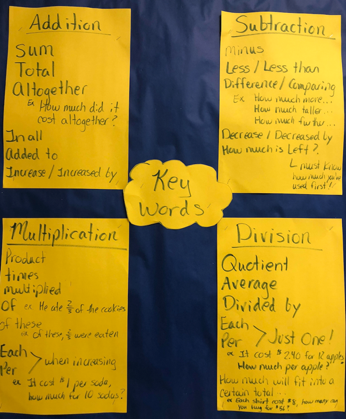 Addition
Sum
Total
Altogether
Ex How much did it
cost altogether?
In all
Added to
Increase / Increased by
Subtraction
Minus
Less / Less than
Difference / Comparing
Ex How much more...
How much taller...
How much further...
Decrease / Decreased by
How much is Left?
must know
how much you've
used first!
Key
Words
Multiplication
Product
times
multiplied
Of ex He ate 2/3 of the cookies
of these
ex Of these, were eaten
Each
Per > when increasing
ex It cost $1 per soda,
how much for 10 sodas?
Division
Quotient
Average
Divided by
Each
Per > Just One!
ex It cost $2.40 for 12 apples
How much per apple?
How much will fit into a
certain total
ex Each shirt cost $8, how many can
you buy for